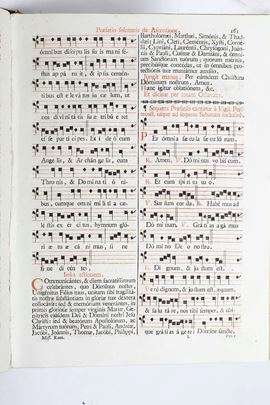 Præfatio solemnis de Ascensione. 161
omnibus discipulis suis manife-
stus appáruit, & ipsis cernén-
tibus est elevátus in cælum, ut
nos divinitátis suæ tribúeret
esse partícipes. Et ideo cum
Angelis, & Archángelis, cum
Thronis, & Dominatió ni-
bus, cumque omni milítia cæ-
léstis exércitus, hymnum
glóriæ tuæ cánimus, sine
fine dicéntes,
Infra actionem.
COmmunicántes, & diem sacratíssimum
celebrántes, quo Dóminus noster,
Unigénitus Fílius tuus, unítam sibi fragilitá-
tis nostræ substántiam in glóriæ tuæ déxtera
collocávit: sed & memóriam venerántes, in
primis gloriósæ semper vírginis Maríæ, Ge-
nitrícis ejúsdem Dei & Dómini nostri Jesu
Christi: sed & beatórum Apostolórum, ac
Mártyrum tuórum, Petri & Pauli, Andréæ,
Jacóbi, Joánnis, Thomæ, Jacóbi, Philíppi,
Miss. Rom.
Bartholomǽi, Matthǽi, Simónis, & Thad-
dǽi; Lini, Cleti, Cleméntis, Xysti, Corné-
lii, Cypriáni, Lauréntii, Chrysógoni, Joán-
nis & Pauli, Cosmæ & Damiáni, & ómni-
um Sanctórum tuórum; quorum méritis,
precibúsque concédas, ut in ómnibus pro-
tectiónis tuæ muniámur auxílio.
Jungit manus. Per eúmdem Christum
Dóminum nostrum. Amen.
Hanc ígitur oblatiónem, &c.
Et dicitur per totam Octavam.
Sequens Præfatio cantatur a
usque ad sequens Sabbatum inclusive.
PEr ómnia sǽcula sæculó rum.
℟. Amen. ℣. Dóminus vobíscum.
℟. Et cum spíritu tuo.
℣. Sursum corda. ℟. Habémus ad
Dóminum. ℣. Grátias agámus
Dómino Deo nostro.
℟. Dignum, & justum est.
VEre dignum, & justum est, æquum
& salutáre, nos tibi semper, &
ubíque grátias ágere: Dómine sancte,
L